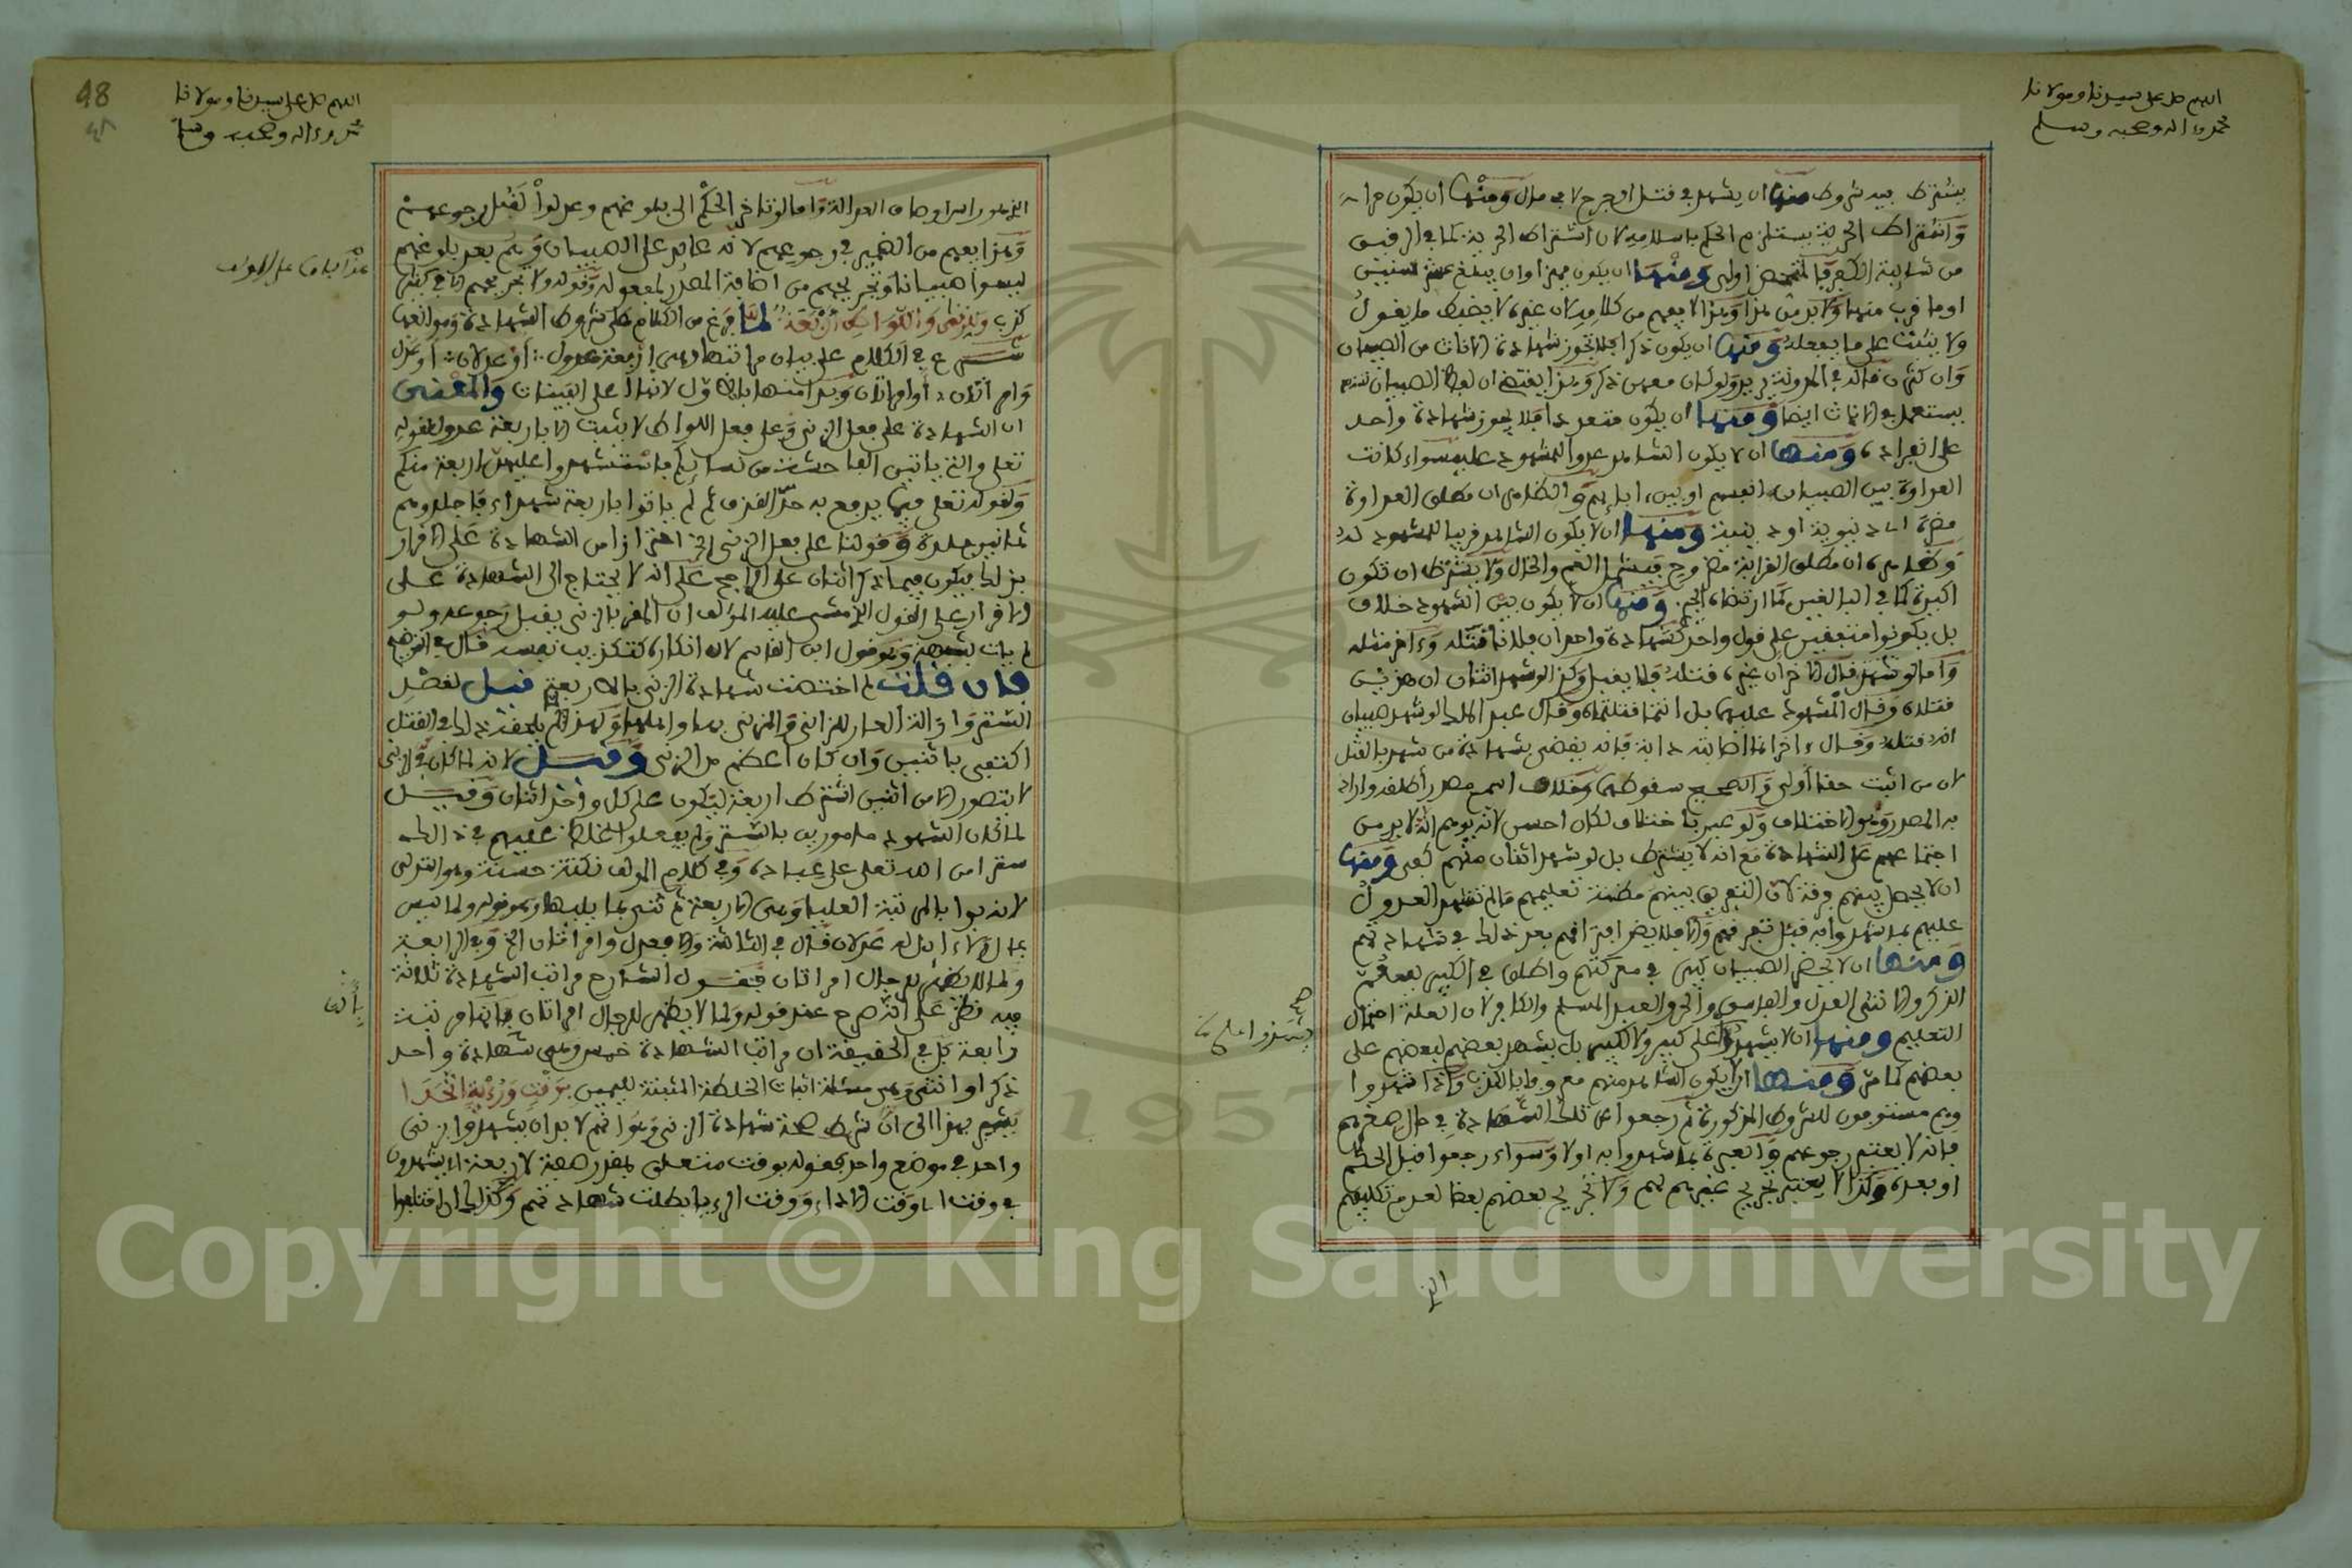 اللهم صل على سيدنا ومولانا
محمد وءاله وصحبه وسلم
يشترط فيه شروط منها ان يشهد في قتل او جرح لا في مال ومنها ان يكون حرا
واشتراط الحرية يستلزم الحكم باسلامه لان اشتراط الحرية لما في الرق
من شايبة الكفر فالتمحض اولى ومنها ان يكون مميزا وان يبلغ عشر سنين
او ما قرب منها ولا بد من هذا وهذا لا يفهم من كلامه لان غيره لا يضبط ما يقول
ولا يثبت على ما يفعله ومنها ان يكون ذكرا فلا تجوز شهادة الاناث من الصبيان
وان كثرن قاله في المدونة يريد ولو كان معهن ذكر وهذا يقتضي ان لفظ الصبيان
يستعمل في الاناث ايضا ومنها ان يكون متعددا فلا يجوز شهادة واحد
على انفراده ومنها ان لا يكون الشاهد عدوا للمشهود عليه سواء كانت
العداوة بين الصبيان انفسهم او بين ءابايهم والظاهر ان مطلق العداوة
مضرة دنيوية او دينية ومنها ان لا يكون الشاهد قريبا للمشهود له
وظاهره ان مطلق القرابة مضر وح فيشمل العم والخال ولا يشترط ان تكون
اكيدة كما في البالغين كما ارتضاه عج ومنها ان لا يكون بين الشهود خلاف
بل يكونوا متفقين على قول واحد كشهادة واحد ان فلانا قتله وءاخر مثله
واما لو شهد وقال الاخر ان غيره قتله فلا يقبل وكذا لو شهد اثنان ان هذين
قتلاه وقال المشهود عليهما بل انتما قتلتماه وقال عبد الملك لو شهد صبيان
انه قتله وقال ءاخران انما اصابته دابة فانه يقضى بشهادة من شهد بالقتل
لان من اثبت حقا اولى والصحيح سقوطهما وخلاف اسم مصدر اطلقه واراد
به المصدر وهو الاختلاف ولو عبر باختلاف لكان احسن لانه يوهم انه لا بد من
اجتماعهم على الشهادة مع انه لا يشترط بل لو شهد اثنان منهم كفى ومنها
ان لا يحصل بينهم فرقة لان التفريق بينهم مظنة تعليمهم ما لم تشهد العدول
عليهم بما شهدوا به قبل تفرقهم والا فلا يضر افتراقهم بعد ذلك في شهادتهم
ومنها ان لا يحضر الصبيان كبير في معركتهم واطلق في الكبير فيعم
الذكر والانثى العدل والفاسق والحر والعبد المسلم والكافر لان العلة احتمال
التعليم ومنها ان لا يشهدوا على كبير ولا لكبير بل يشهد بعضهم لبعضهم على
بعضهم كما مر ومنها ان لا يكون الشاهد منهم معروفا بالكذب واذا شهدوا
وهم مستوفون للشروط المذكورة ثم رجعوا عن تلك الشهادة في حال صغرهم
فانه لا يعتبر رجوعهم والعبرة بما شهدوا به اولا وسواء رجعوا قبل الحكم
او بعده وكذا لا يعتبر تجريح غيرهم لهم ولا تجريح بعضهم بعضا لعدم تكليفهم
48
٤٨
اللهم صل على سيدنا ومولانا
محمد وءاله وصحبه وسلم
الذي هو راس اوصاف العدالة واما لو تاخر الحكم الى بلوغهم وعدلوا لقبل رجوعهم
وهذا يفهم من الضمير في رجوعهم لانه عايد على الصبيان وهم بعد بلوغهم
ليسوا صبيانا وتجريحهم من اضافة المصدر لمفعوله وقوله ولا تجريحهم اي الا في كثير
كذب وللزنى واللواط اربعة لما فرغ من الكلام على شروط الشهادة وموانعها
شرع في الكلام على بيان مراتبها وهي اربعة عدول او عدلان او عدل
وامراتان او امراتان وبدا منها بالاول لانها اعلى البينات والمعنى
ان الشهادة على فعل الزنى وعلى فعل اللواط لا يثبت الا باربعة عدول لقوله
تعلى والتي ياتين الفاحشة من نسايكم فاستشهدوا عليهن اربعة منكم
ولقوله تعلى فيما يدفع به حد القذف ثم لم ياتوا باربعة شهداء فاجلدوهم
ثمانين جلدة وقولنا على فعل الزنى الخ احترازا من الشهادة على الاقرار
بذلك فيكون فيها ذكر اثنان على الراجح على انه لا يحتاج الى الشهادة على
الاقرار على القول الذي مشى عليه المؤلف ان المقر بالزنى يقبل رجوعه ولو
لم يات بشبهة وهو قول ابن القاسم لان انكاره كتكذيب نفسه قال في التوضيح
فان قلت لم اختصت شهادة الزنى بالاربعة قيل لقصد
الستر وازالة العار للزاني والمزني بها واهلها ولهذا لم يلحق ذلك في القتل
اكتفي باثنين وان كان اعظم من الزنى وقيل لانه لما كان الزنى
لا يتصور الا من اثنين اشترط اربعة ليكون على كل واحد اثنان وقيل
لما كان الشهود مامورين بالستر ولم يفعلوا غلظ عليهم في ذلك
سترا من الله تعلى على عباده وفي كلام المؤلف نكتة حسنة وهو التدلي
لانه بدا بالمرتبة العليا وهي الاربعة ثم ثنى بما يليها وهو قوله ولما ليس
بمال ولا ءايل له عدلان قال في الثالثة والا فعدل وامراتان الخ وفي الرابعة
ولما لا يظهر للرجال امراتان فقول الشارح مراتب الشهادة ثلاثة
فيه نظر على انه صرح عند قوله ولما لا يظهر للرجال امراتان بانها مرتبة
رابعة بل في الحقيقة ان مراتب الشهادة خمس وهي شهادة واحد
ذكرا او انثى وهي مسئلة اثبات الخلطة المثبتة لليمين بوقت ورؤية اتحدا
يشير بهذا الى ان شرط صحة شهادة الزنى والله اعلم لا بد ان يشهدوا بزنى
واحد في موضع واحد فقوله بوقت متعلق بمقدر صفة لاربعة اي يشهدون
في وقت اي وقت الاداء ووقت الرؤيا بطلت شهادتهم وكذلك ان اختلفوا
Copyright © King Saud University
1957